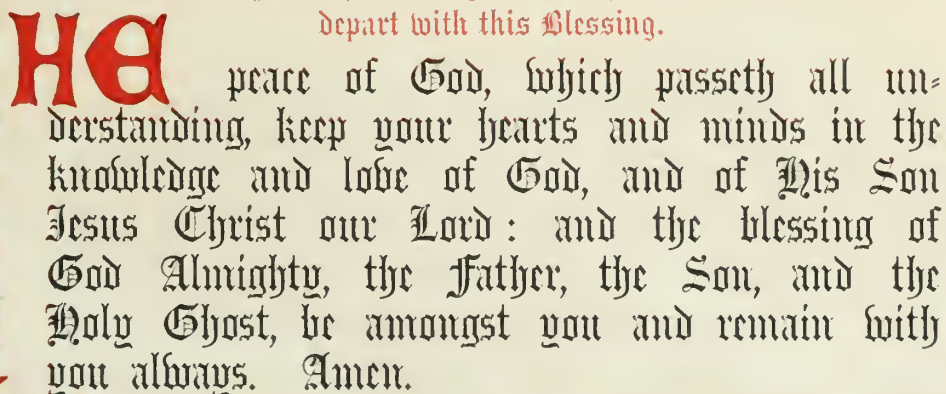 depart with this Blessing.
HE peace of God, which passeth all un-
derstanding, keep your hearts and minds in the
knowledge and love of God, and of His Son
Jesus Christ our Lord : and the blessing of
God Almighty, the Father, the Son, and the
Holy Ghost, be amongst you and remain with
you always. Amen.